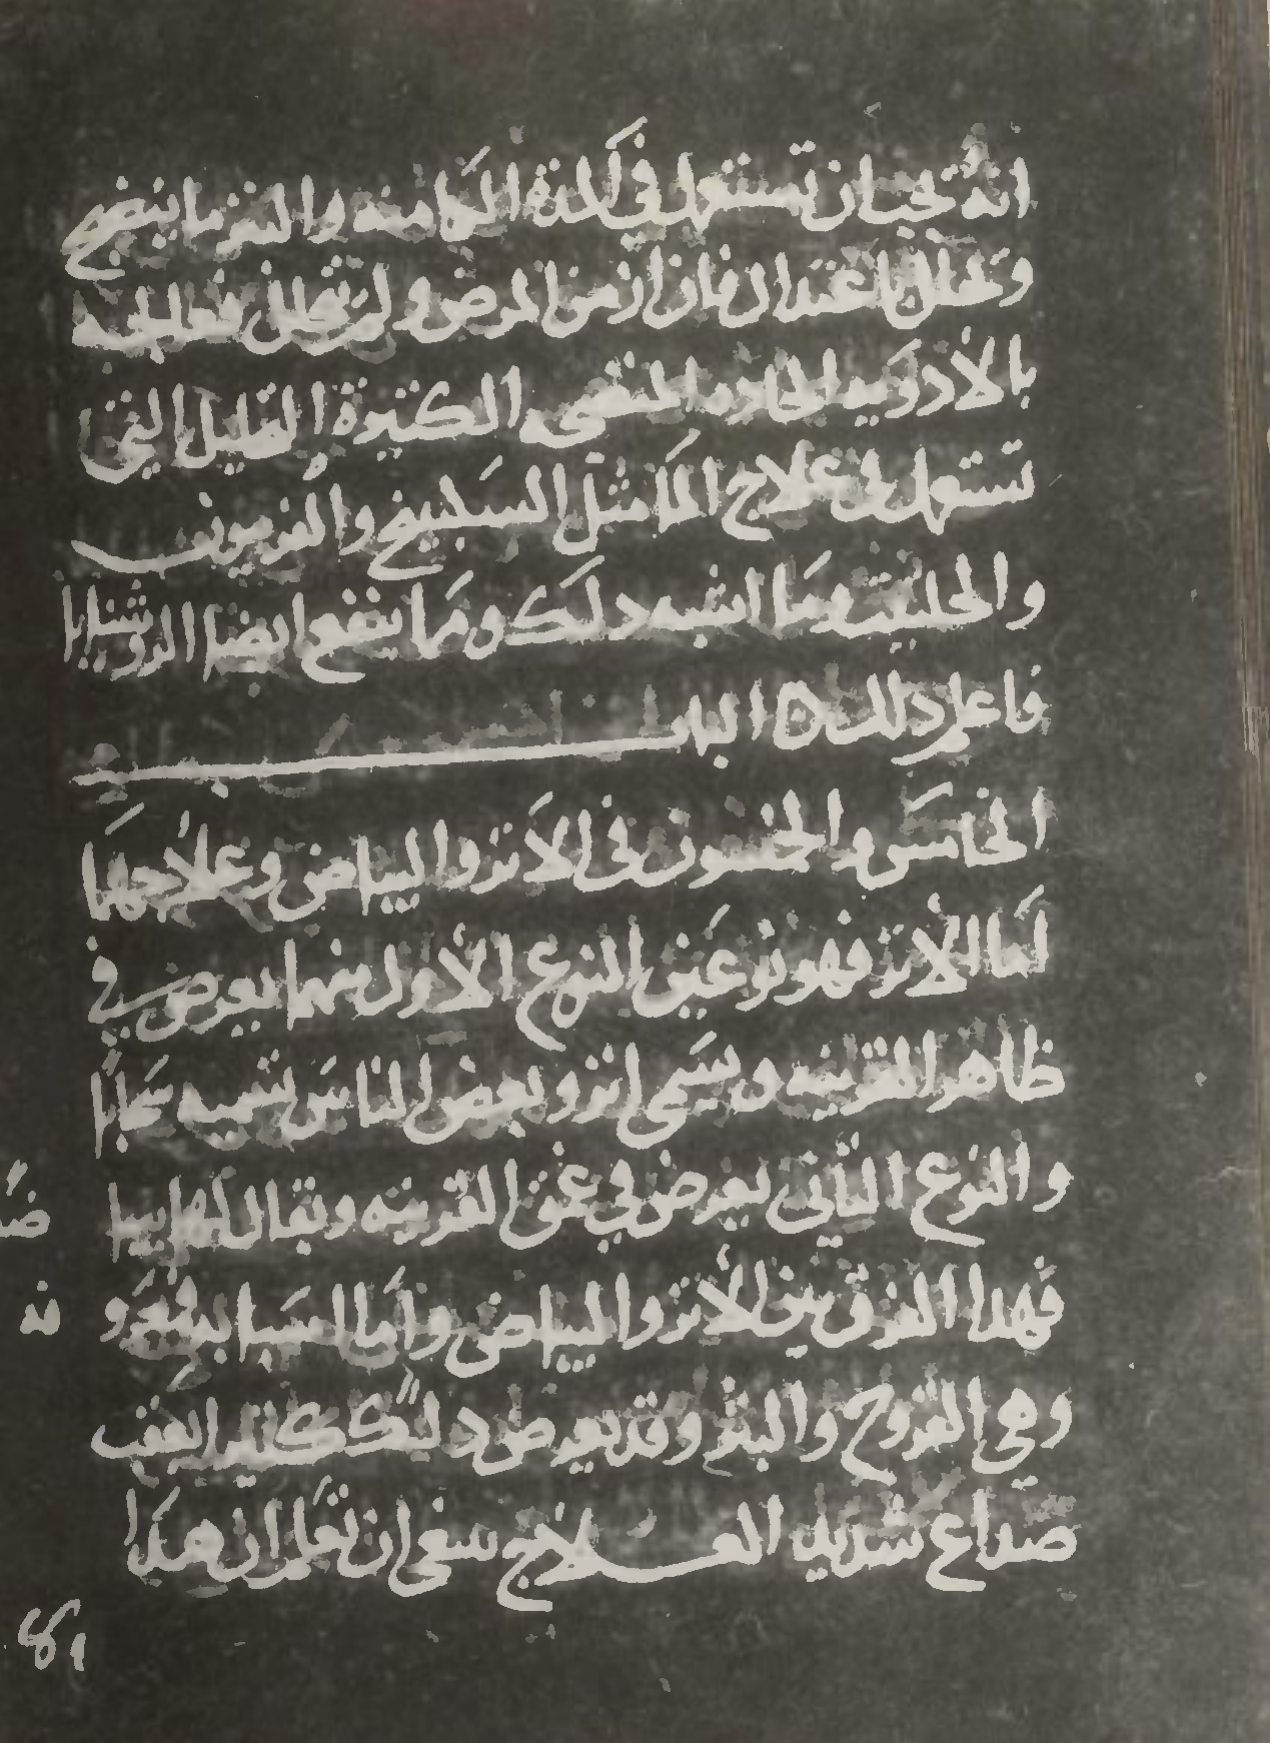 انه يجب ان تستعمل في كمنة الكامنه والتغير ما ينضج
وتحلل باعتدال فان ازمن المرض ولم تحلل فعالجه
بالادويه الحاده المنضجه الكثيرة القليل التي
تستعمل في علاج الما مثل السكبينج والفربيون
والحلتيت وما اشبه دلك ومما ينفع ايضا الروشنايا
فاعلم دلك ه الباب
الخامس والخمسون في الاثر والبياض وعلاجهما
اما الاثر فهو نوعين النوع الاول منهما يعرض في
ظاهر القرنيه ويسمى اثر وبعض الناس تسميه سحابا
والنوع الثاني يعرض في عمق القرنيه ويقال لها بيا
فهدا الفرق بين الاثر والبياض واما اسبابه
وهي القروح والبثر وقد يعرض دلك كثيرا بعقب
صداع شديد العلاج ينبغي ان تعلم ان هدا